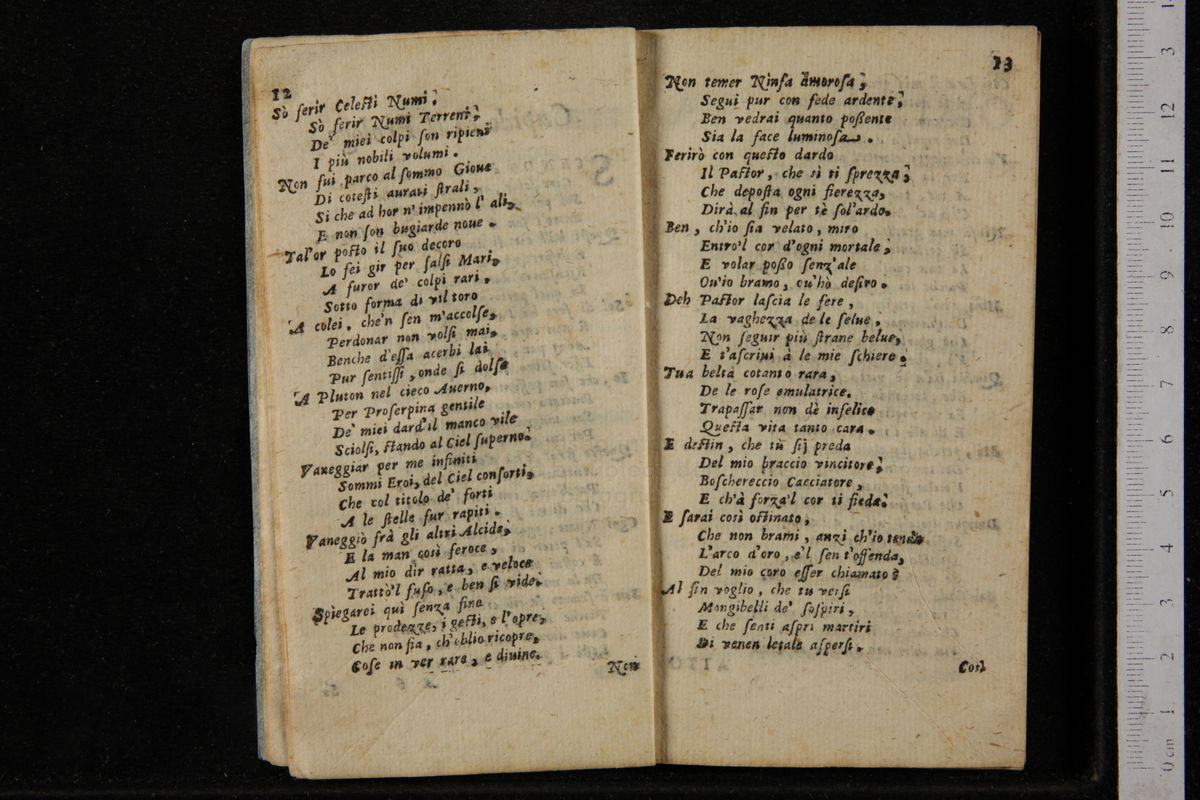 12
Sò ferir Celeſti Numi;
Sò ferir Numi Terreni;
De' miei colpi ſon ripieni
I più nobili volumi.
Non fui parco al ſommo Gioue
Di coteſti aurati ſtrali,
Si che ad hor n'impennò l'ali,
E non ſon bugiarde noue.
Tal'or poſto il ſuo decoro
Lo fei gir per ſalſi Mari,
A furor de' colpi rari,
Sotto forma di vil toro
A colei, che'n ſen m'accolſe,
Perdonar non volſi mai,
Benche d'eſſa acerbi lai
Pur ſentiſſi, onde ſi dolſe
A Pluton nel cieco Auerno,
Per Proſerpina gentile
De' miei dard'il manco vile
Sciolſi, ſtando al Ciel ſuperno.
Vaneggiar per me infiniti
Sommi Eroi, del Ciel conſorti,
Che col titolo de' forti
A le ſtelle fur rapiti.
Vaneggiò frà gli altri Alcide,
E la man così feroce,
Al mio dir ratta, e veloce
Trattò'l fuſo, e ben ſi vide.
Spiegarei quì ſenza fine
Le prodezze, i geſti, e l'opre,
Che non fia, ch'oblio ricopre,
Coſe in ver rare, e diuine.
Non
13
Non temer Ninfa amoroſa;
Segui pur con fede ardente;
Ben vedrai quanto poſſente
Sia la face luminoſa.
Ferirò con queſto dardo
Il Paſtor, che sì ti ſprezza;
Che depoſta ogni fierezza,
Dirà al fin per tè ſol'ardo.
Ben, ch'io ſia velato, miro
Entro'l cor d'ogni mortale;
E volar poſſo ſenz'ale
Ou'io bramo, ou'hò deſiro.
Deh Paſtor laſcia le fere,
La vaghezza de le ſelue,
Non ſeguir più ſtrane belue,
E t'aſcriui à le mie ſchiere.
Tua beltà cotanto rara,
De le roſe emulatrice,
Trapaſſar non dè infelice
Queſta vita tanto cara.
E deſtin, che tù ſij preda
Del mio braccio vincitore;
Boſchereccio Cacciatore,
E ch'à forza'l cor ti fieda.
E ſarai così oſtinato,
Che non brami, anzi ch'io tenda
L'arco d'oro, e'l ſen t'offenda,
Del mio coro eſſer chiamato?
Al fin voglio, che tu verſi
Mongibelli de' ſoſpiri,
E che ſenti aſpri martiri
Di venen letale aſperſi.
Così